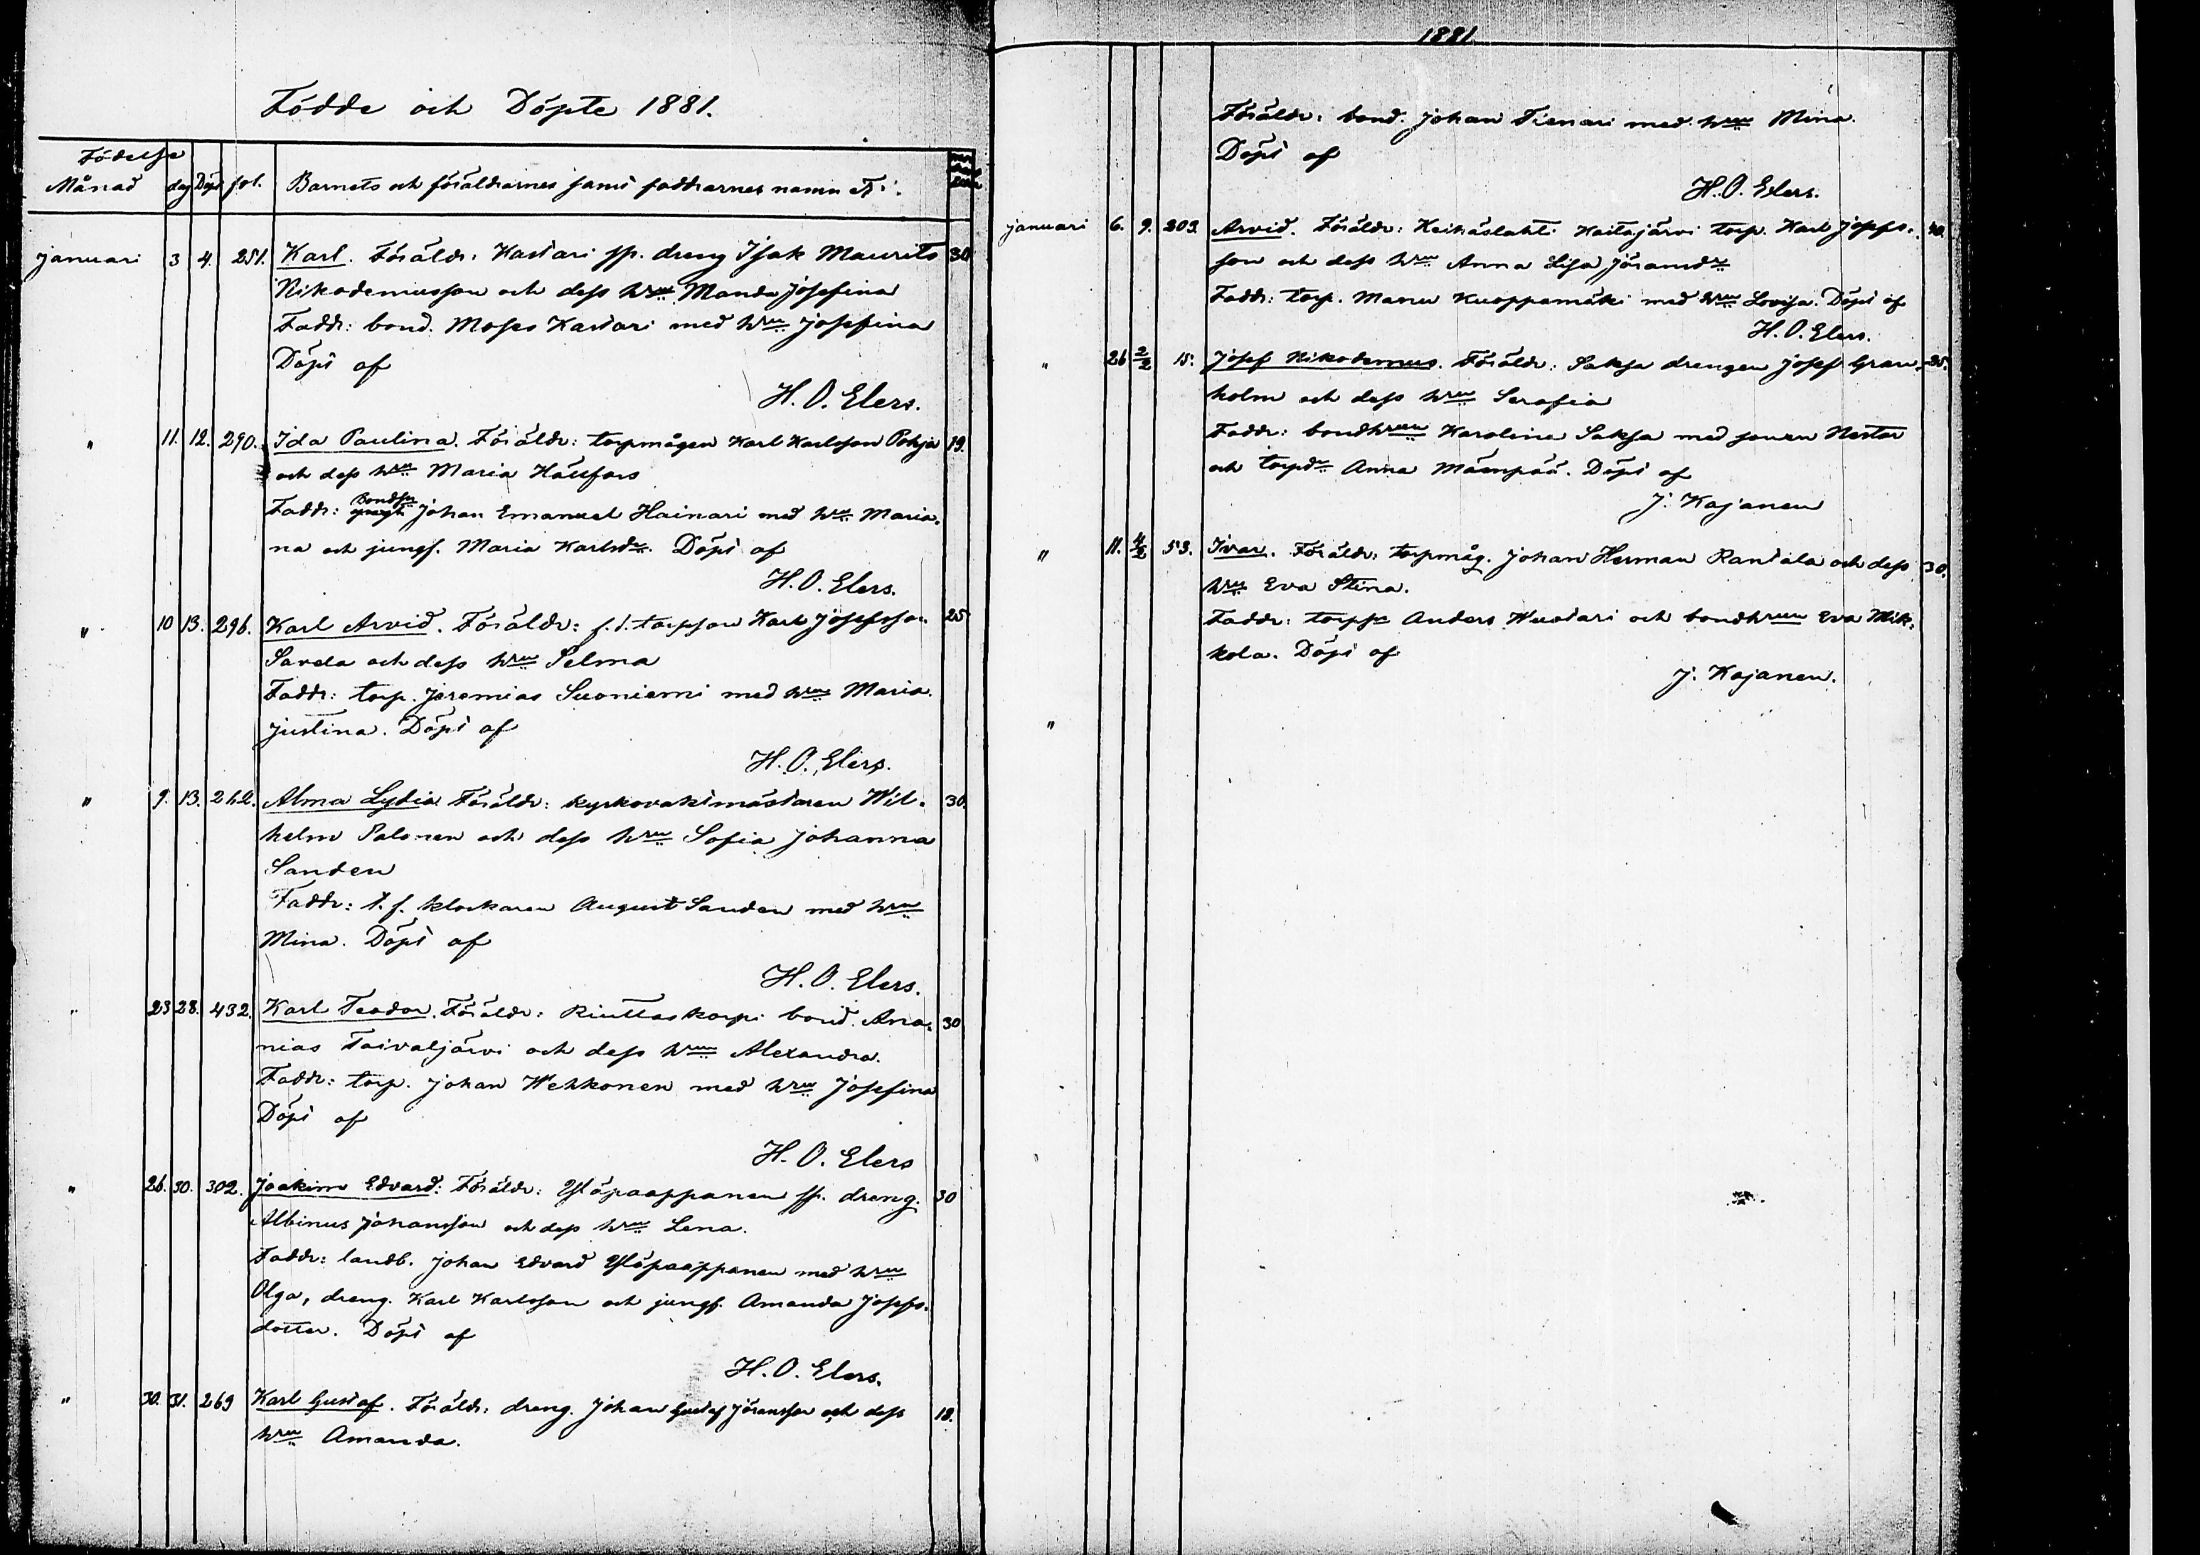 Födde och Döpte 1881.
Födelse
Månad dag Döpt fol. Barnets och föräldrarnes samt faddrarnes namn &.
januari 3 4. 251. Karl. Föräldr: Kastari sp. dreng Isak Maurits 30
Nikodemusson och dess hru Manda Josefina
Faddr: bond. Moses Kastari med hru Josefina
Döpt af
H. O. Elers.
" 11. 12. 290. Ida Paulina. Föräldr: torpmågen Karl Karlsson Pohja 19.
och dess hru Maria Hällfors
Faddr: Bondsn Johan Emanuel Hainari med hru Maria-
na och jungf. Maria Karlsdr. Döpt af
H. O. Elers.
" 10 13. 296. Karl Arvid. Föräldr: f.d. torpson Karl Josefsson 25
Savela och dess hru Selma
Faddr: torp. Jeremias Suoniemi med hru Maria
Justina. Döpt af
H. O. Elers.
" 9. 13. 262. Alma Lydia Föräldr: kyrkovaktmästaren Wil- 30.
helm Salonen och dess hru Sofia Johanna
Sanden
Faddr: t. f. klockaren August Sanden med hru
Mina. Döpt af
H. O. Elers.
" 23 28. 432. Karl Teodor. Föräldr: Riuttaskorpi bond. Ana- 30
nias Taivaljärvi och dess hru Alexandra.
Faddr: torp. Johan Wehkonen med hru Josefina
Döpt af
H. O. Elers
" 26. 30. 302. Joakim Edvard: Föräldr: Ylöpaappanen sp. dreng. 30
Albinus Johansson och dess hru Lena.
Faddr: landb. Johan Edvard Ylöpaappanen med hru
Olga, dreng. Karl Karlsson och jungf. Amanda Josefs-
dotter. Döpt af
H. O. Elers.
" 30. 31. 269 Karl Gustaf. Föräldr: dreng. Johan Gustaf Jöransson och dess 18.
hru Amanda.
1881
Föräldr: bond. Johan Tienari med hru Mina
Döpt af
H. O. Elers.
januari 6. 9. 203. Arvid. Föräldr: Keihäslahti Haitajärvi torp. Karl Josefs- 40.
son och dess hru Anna Lisa Jöransdr
Faddr: torp. Manu Kuoppamäki med hru Lovisa. Döpt af
H. O. Elers.
" 26 2/2 15. Josef Nikodemus. Föräldr: Saksa drengen Josef Gran- 25.
holm och dess hru Serafia
Faddr: bondhrun Karolina Saksa med sonen Nestor
och torpdr Anna Mäenpää. Döpt af
J. Kajanen
" 11. 4/2 53. Ivar. Föräldr: torpmåg. Johan Herman Rantala och dess 30.
hru Eva Stina.
Faddr: torpsn Anders Wuotari och bondhrun Eva Mik-
kola. Döpt af
J. Kajanen.
"